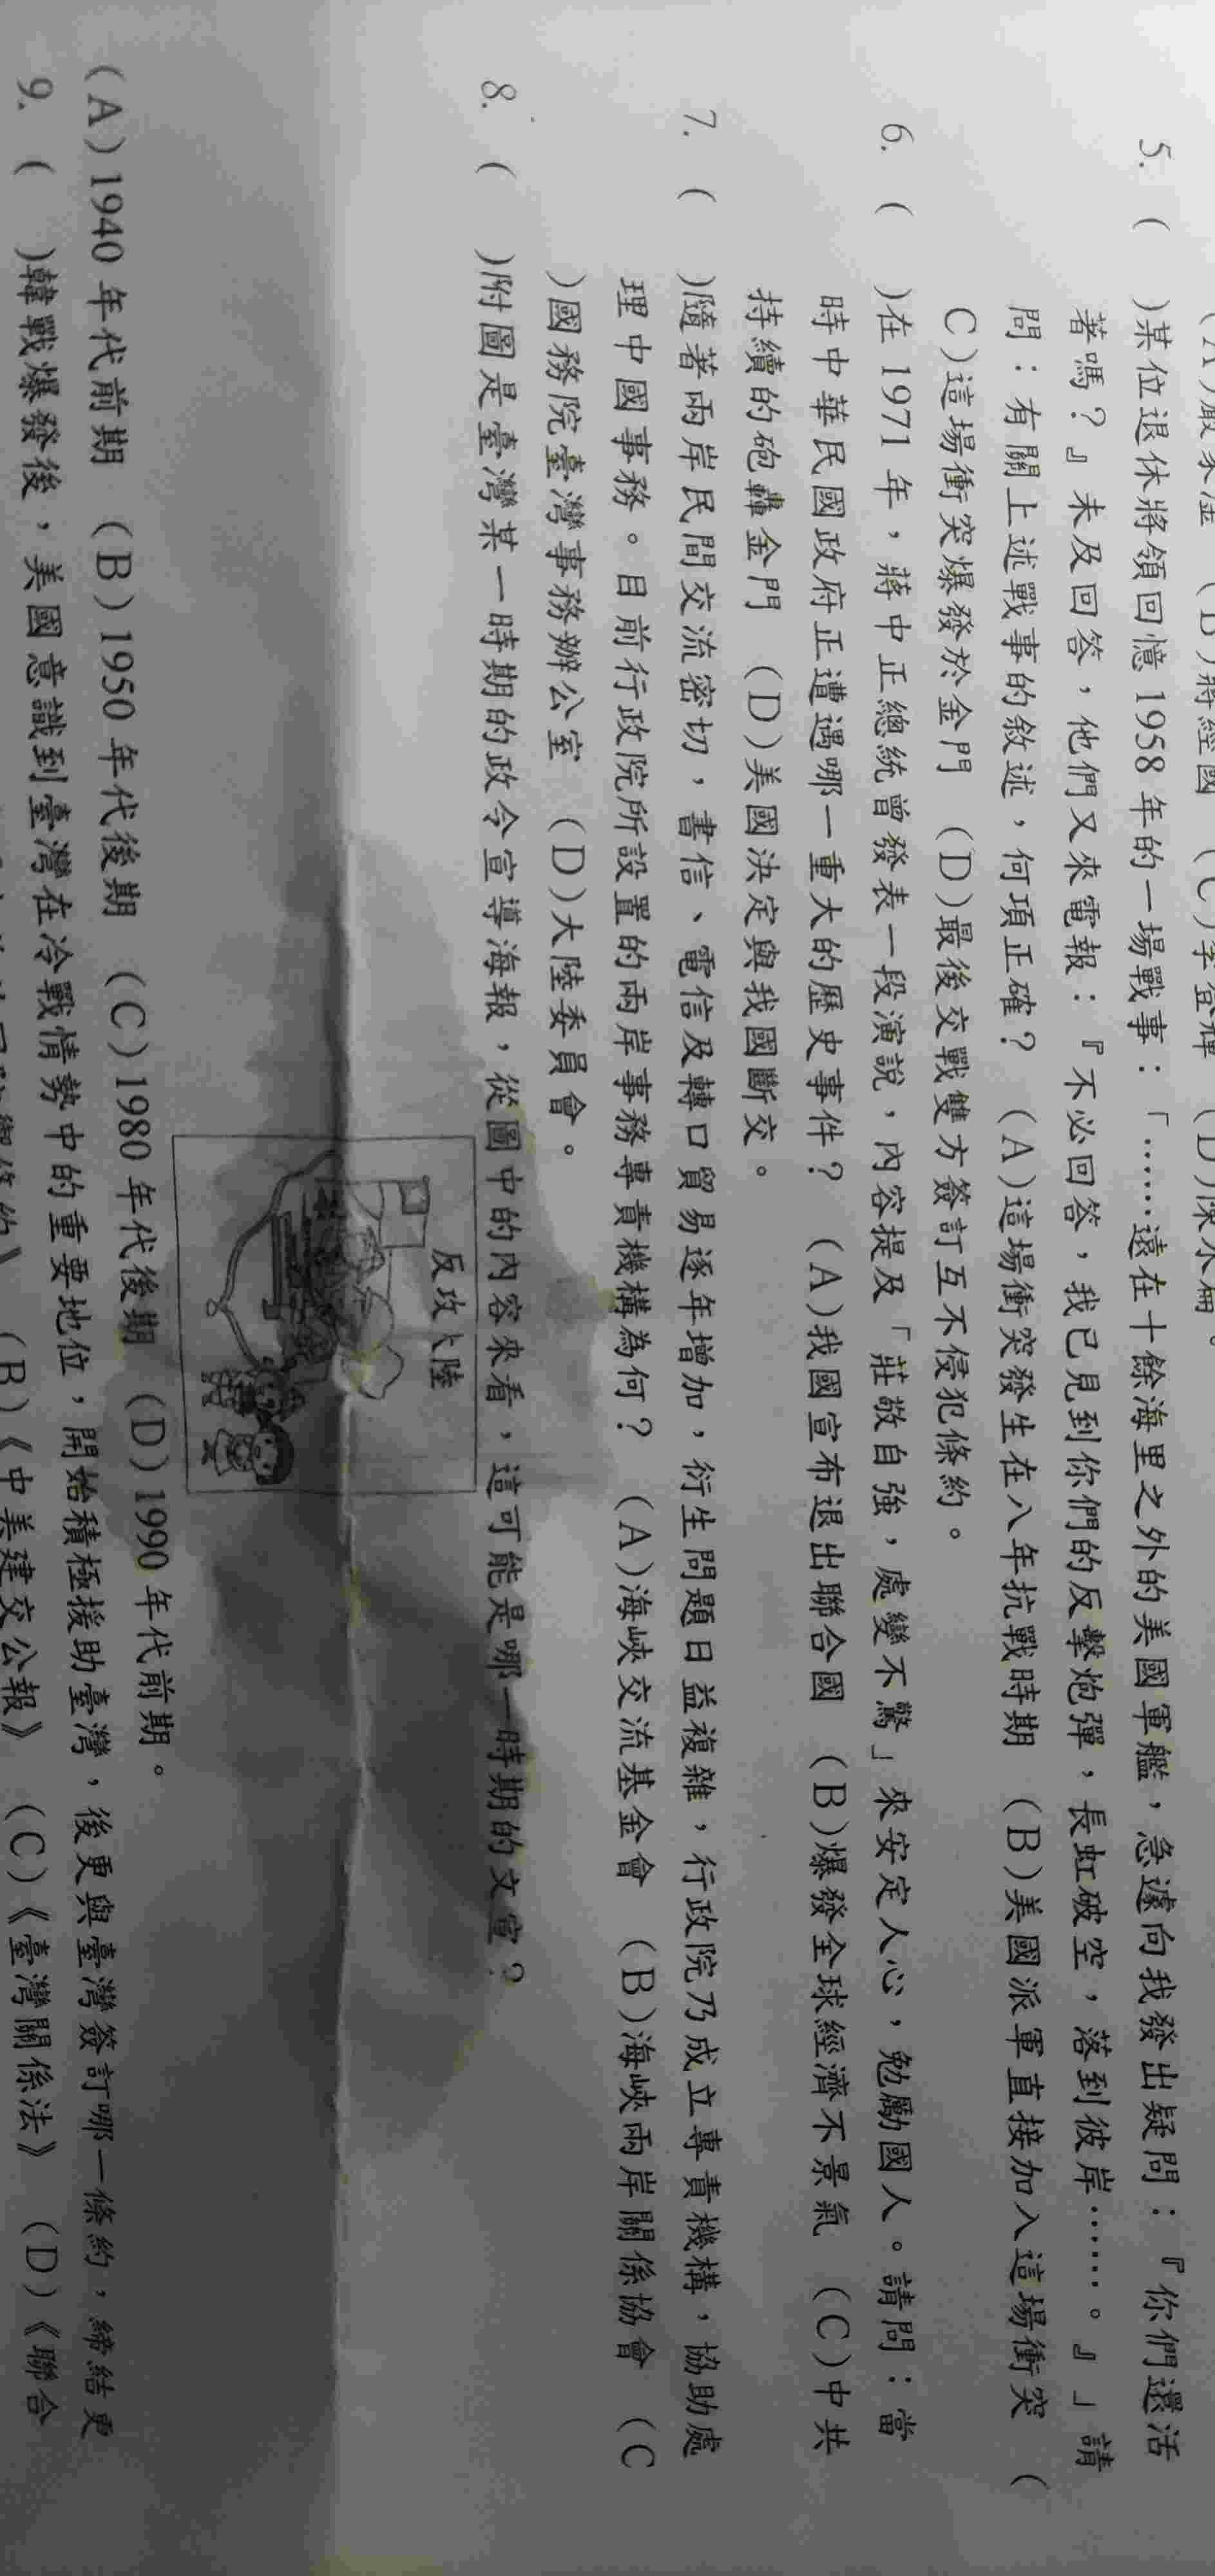 5. (　)某位退休將領回憶 1958 年的一場戰事：「……遠在十餘海里之外的美國軍艦，急遽向我發出疑問：『你們還活
著嗎？』未及回答，他們又來電報：『不必回答，我已見到你們的反擊炮彈，長虹破空，落到彼岸……。』」請
問：有關上述戰事的敘述，何項正確？ (A)這場衝突發生在八年抗戰時期 (B)美國派軍直接加入這場衝突 (
C)這場衝突爆發於金門 (D)最後交戰雙方簽訂互不侵犯條約。
6. (　)在 1971 年，蔣中正總統曾發表一段演說，內容提及「莊敬自強，處變不驚」來安定人心，勉勵國人。請問：當
時中華民國政府正遭遇哪一重大的歷史事件？ (A)我國宣布退出聯合國 (B)爆發全球經濟不景氣 (C)中共
持續的砲轟金門 (D)美國決定與我國斷交。
7. (　)隨著兩岸民間交流密切，書信、電信及轉口貿易逐年增加，衍生問題日益複雜，行政院乃成立專責機構，協助處
理中國事務。目前行政院所設置的兩岸事務專責機構為何？ (A)海峽交流基金會 (B)海峽兩岸關係協會 (C
)國務院臺灣事務辦公室 (D)大陸委員會。
8. (　)附圖是臺灣某一時期的政令宣導海報，從圖中的內容來看，這可能是哪一時期的文宣？
反攻大陸
(A)1940 年代前期 (B)1950 年代後期 (C)1980 年代後期 (D)1990 年代前期。
9. (　)韓戰爆發後，美國意識到臺灣在冷戰情勢中的重要地位，開始積極援助臺灣，後更與臺灣簽訂哪一條約，締結更
(B)《中美建交公報》 (C)《臺灣關係法》 (D)《聯合